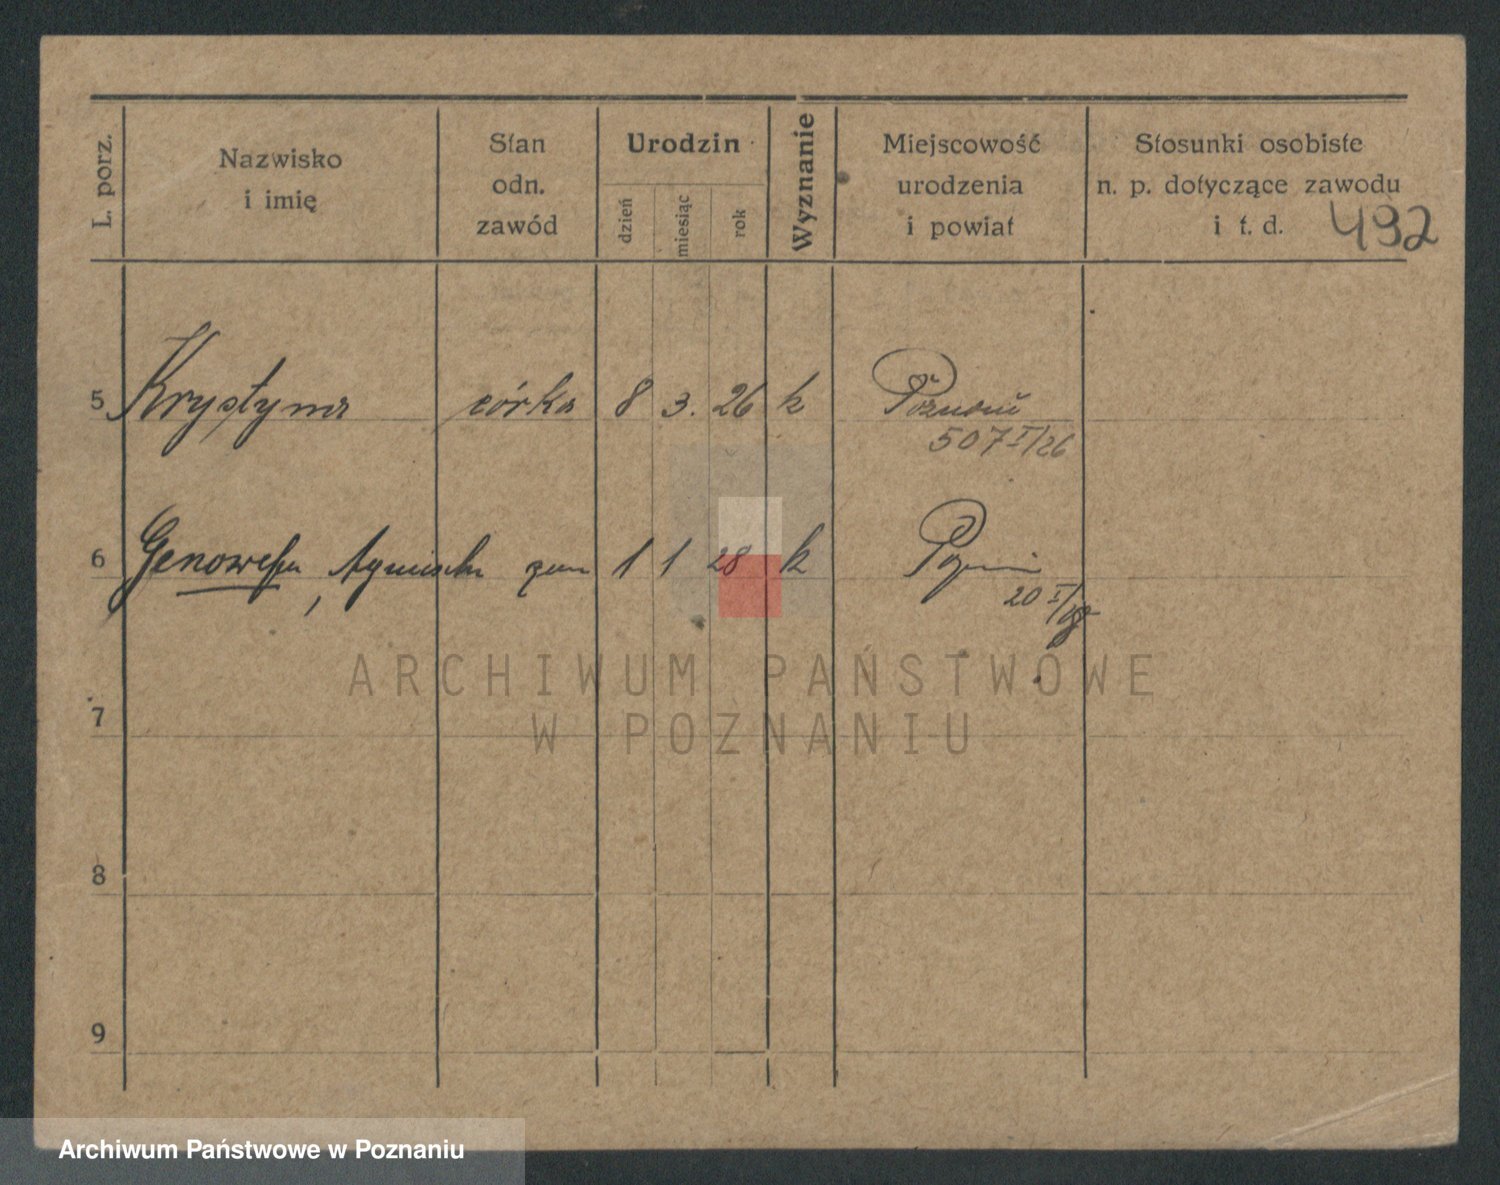 L. porz.
Nazwisko
i imię
Stan
odn.
zawód
Urodzin
dzień
miesiąc
rok
Wyznanie
Miejscowość
urodzenia
i powiat
Stosunki osobiste
n. p. dotyczące zawodu
i t. d.
492
5 Krystyna córka 8 3. 26 k Poznań
507 I/26
6 Genowefa, 1 1 28 k Poznań
20 I/28
ARCHIWUM PAŃSTWOWE
W POZNANIU
7
8
9
Archiwum Państwowe w Poznaniu